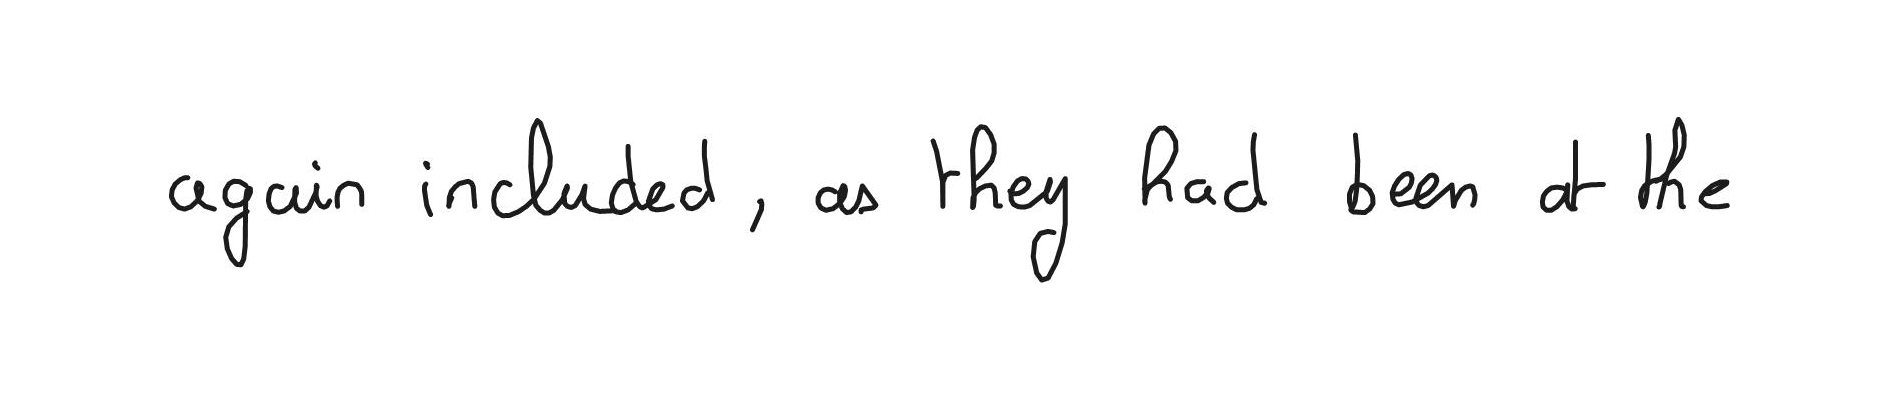 again included, as they had been at the